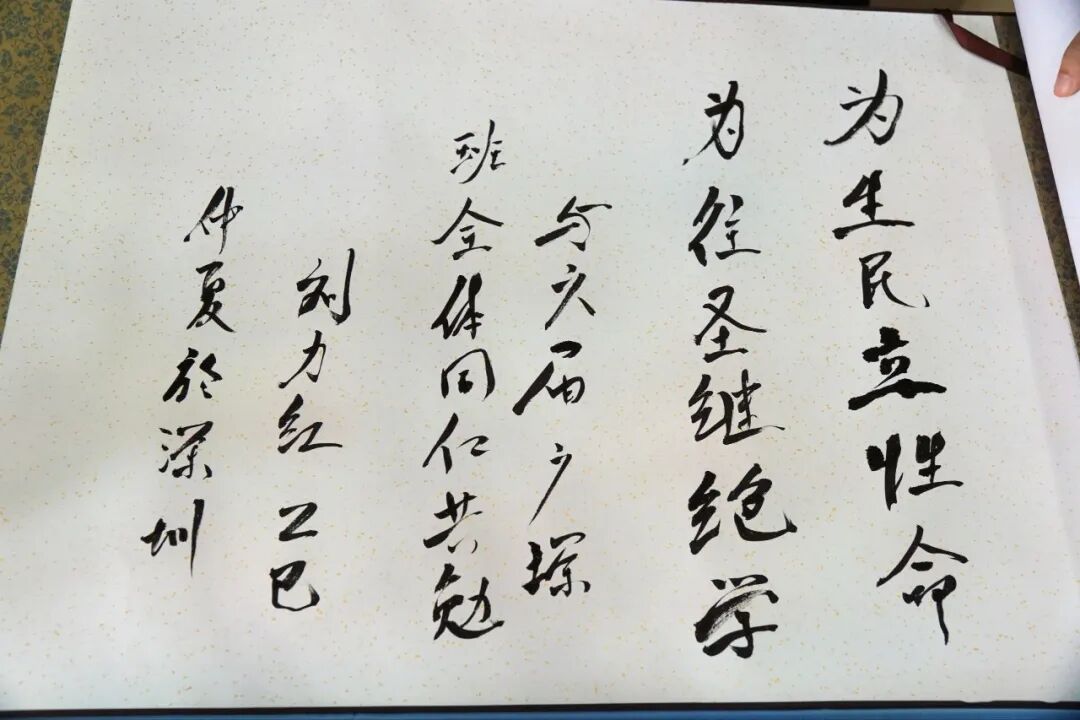 为生民立性命
为往圣继绝学
与六届广深
班全体同仁共勉
刘力红 乙巳
仲夏於深圳